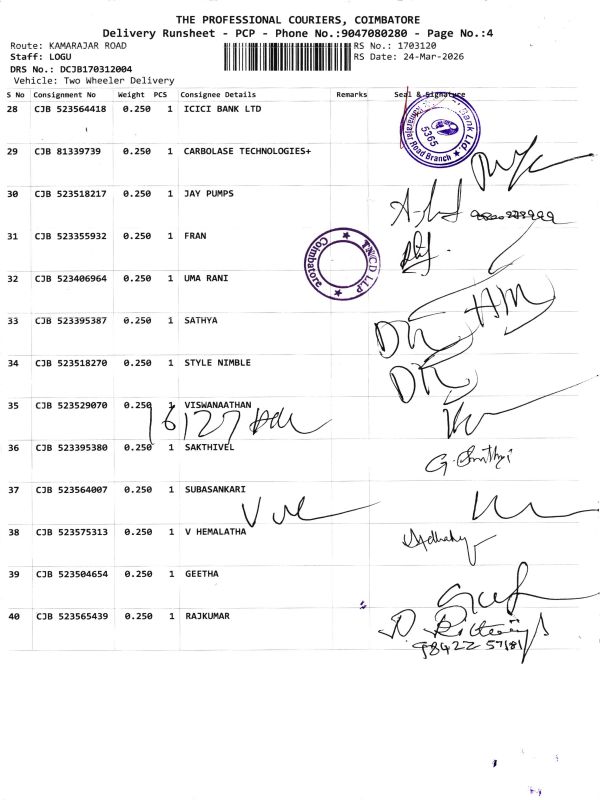 THE PROFESSIONAL COURIERS, COIMBATORE
Delivery Runsheet - PCP - Phone No.:9047080280 - Page No.:4
Route: KAMARAJAR ROAD RS No.: 1703120
Staff: LOGU RS Date: 24-Mar-2026
DRS No.: DCJB170312004
Vehicle: Two Wheeler Delivery
S No Consignment No Weight PCS Consignee Details Remarks Seal & Signature
28 CJB 523564418 0.250 1 ICICI BANK LTD
Bank Ltd. 5365 Kamarajar Road Branch
29 CJB 81339739 0.250 1 CARBOLASE TECHNOLOGIES+
30 CJB 523518217 0.250 1 JAY PUMPS
31 CJB 523355932 0.250 1 FRAN
Coimbatore
32 CJB 523406964 0.250 1 UMA RANI
33 CJB 523395387 0.250 1 SATHYA
34 CJB 523518270 0.250 1 STYLE NIMBLE
35 CJB 523529070 0.250 1 VISWANAATHAN
36 CJB 523395380 0.250 1 SAKTHIVEL
37 CJB 523564007 0.250 1 SUBASANKARI
38 CJB 523575313 0.250 1 V HEMALATHA
39 CJB 523504654 0.250 1 GEETHA
40 CJB 523565439 0.250 1 RAJKUMAR
98422 57181